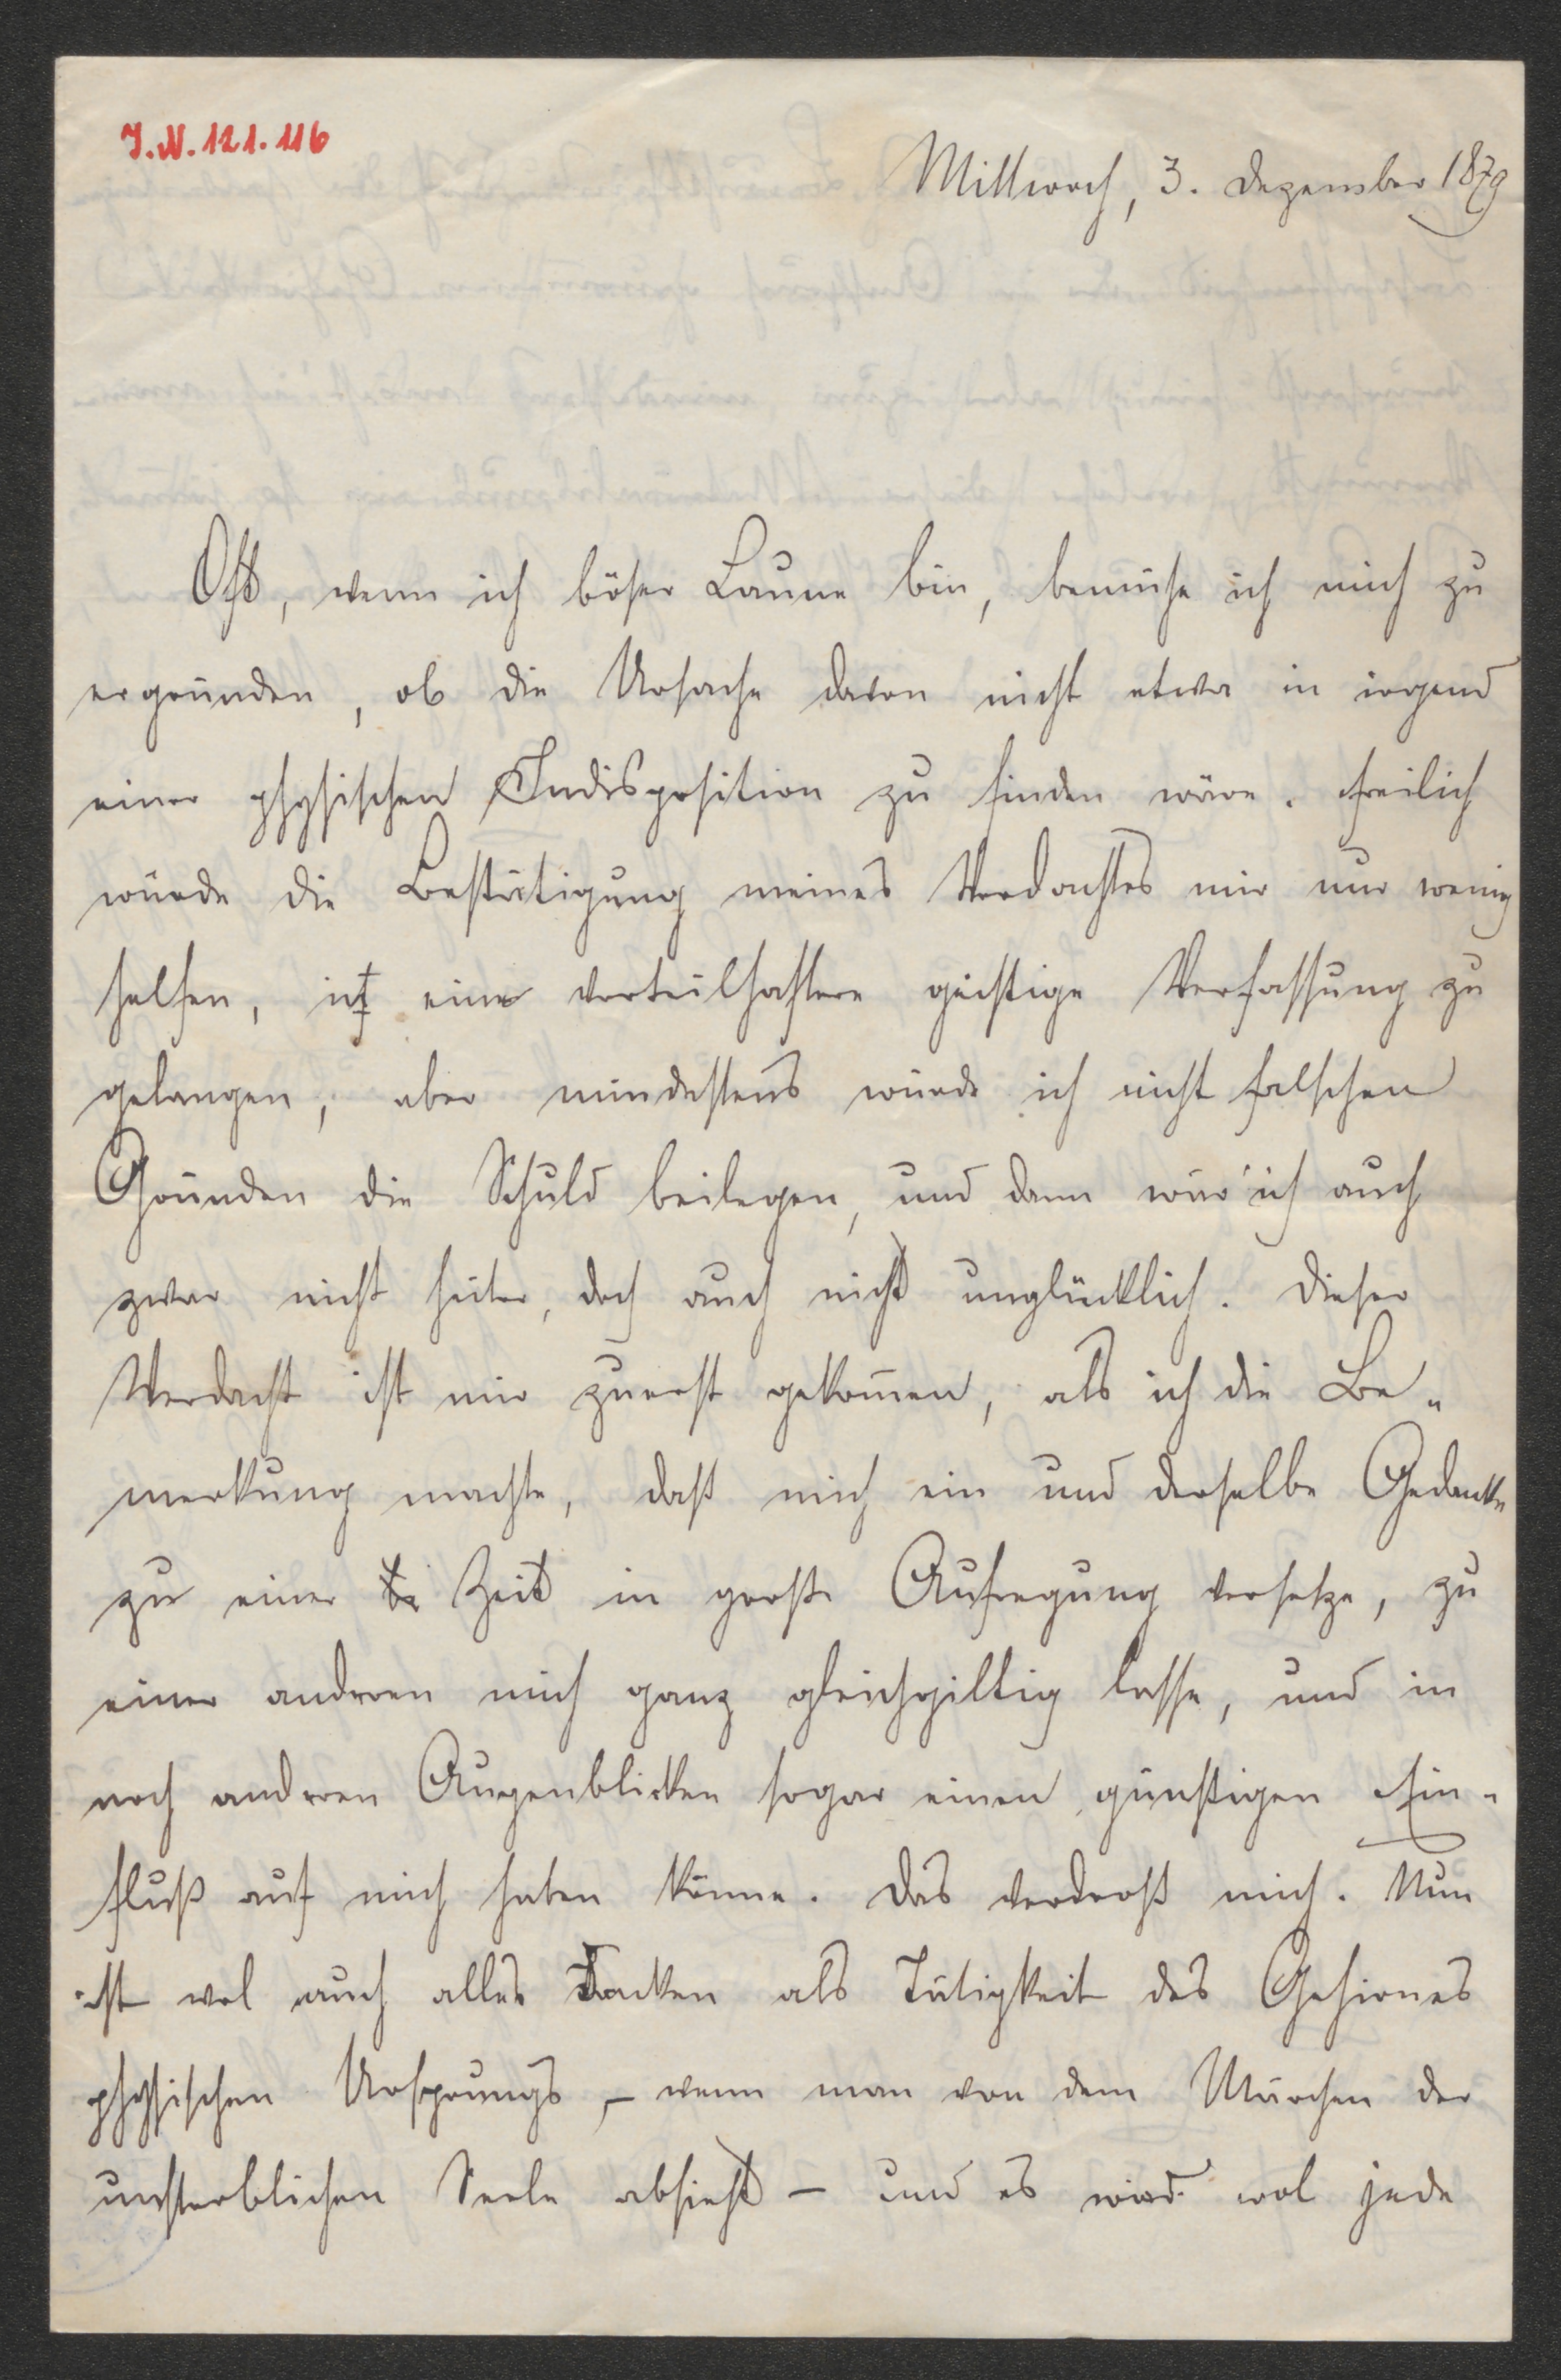 I.N. 121.116
Mittwoch, 3. Dezember 1879
Oft, wenn ich böser Laune bin, bemühe ich mich zu
ergründen, ob die Ursache davon nicht etwa in irgend
einer physischen Indisposition zu finden wäre. Freilich
würde die Bestätigung meines Verdachtes mir nur wenig
helfen, in eine vorteilhaftere geistige Verfassung zu
gelangen, aber mindestens würde ich nicht falschen
Gründen die Schuld beilegen, und dann wär' ich auch
zwar nicht heiter, doch auch nicht unglücklich. Dieser
Verdacht ist mir zuerst gekom̄en, als ich die Be-
merkung machte, daß mich ein und derselbe Gedanke
zu einer Zeit in große Aufregung versetze, zu
einer anderen mich ganz gleichgiltig lasse, und in
noch anderen Augenblicken sogar einen günstigen Ein-
fluß auf mich haben könne. Das verdroß mich. Nun
ist wol auch alles Denken als Tätigkeit des Gehirnes
physischen Ursprungs, – wenn man von dem Märchen der
unsterblichen Seele absieht – und es wird wol jede